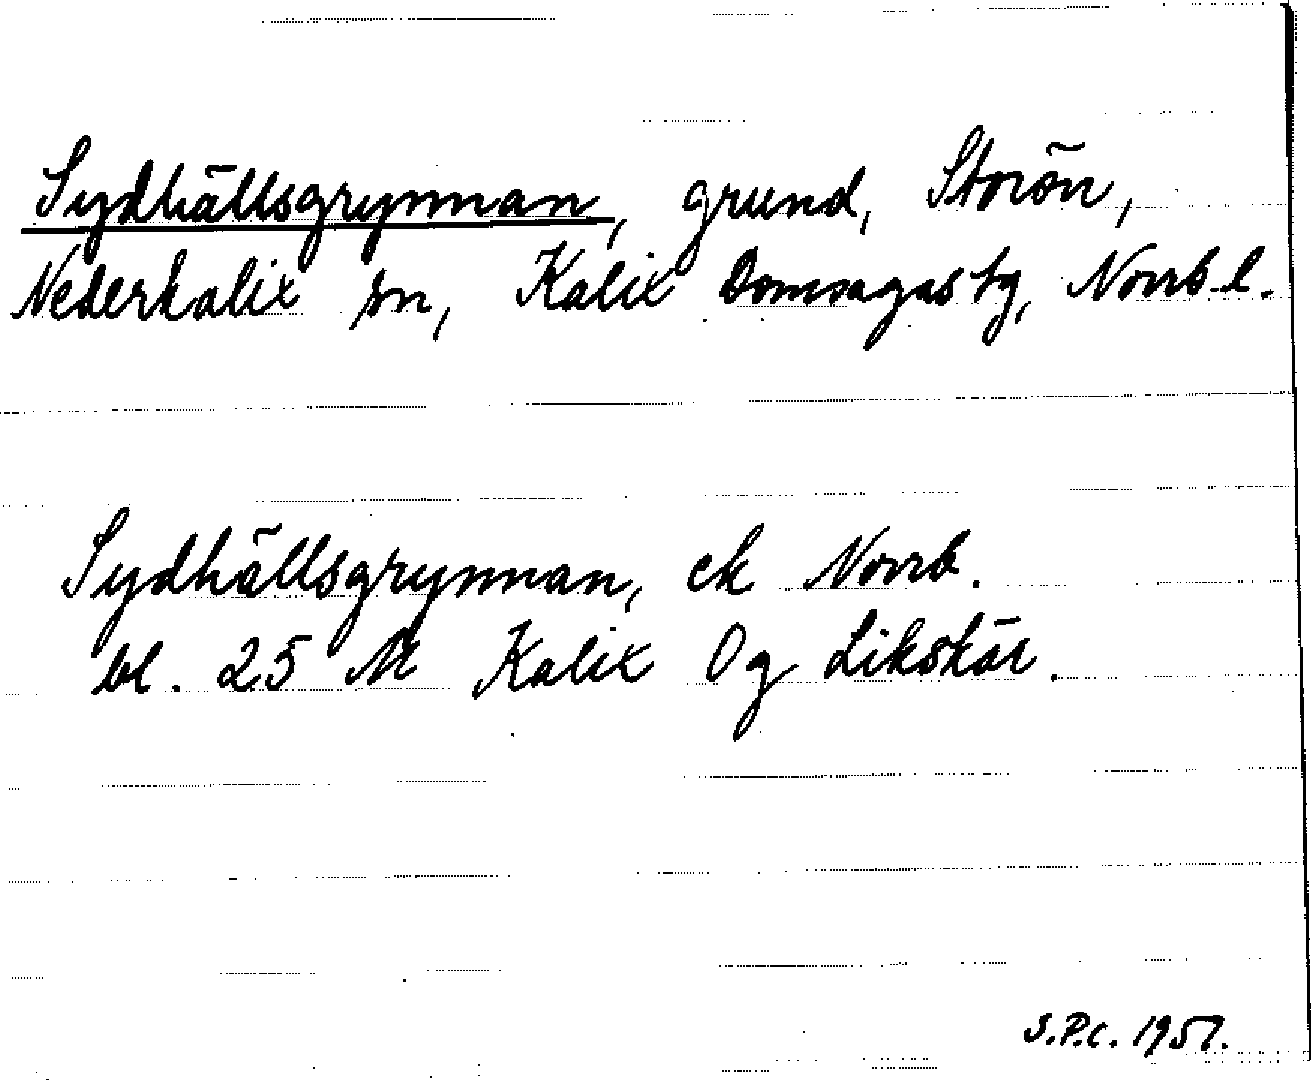 Sydhällsgrynnan, grund, Storön,
Nederkalix sn, Kalix Domsagas tg, Norrb. l.
Sydhällsgrynnan, ek Norrb.
bl. 25 M Kalix Og Likskär.
S.P.C. 1957.